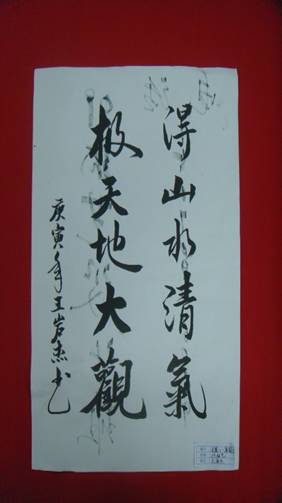 得山水清氣
極天地大觀
庚寅年王岩杰书